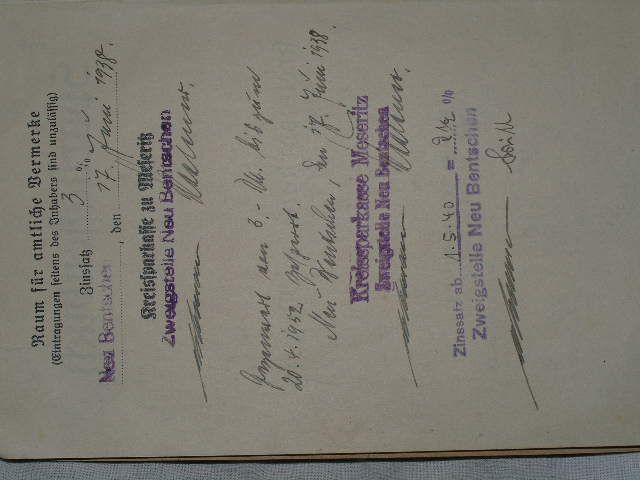 Raum für amtliche Vermerke
(Eintragungen seitens des Inhabers sind unzulässig)
Zinssatz 3 %
Neu Bentschen, den 17. Juni 1938.
Kreissparkasse zu Meseritz
Zweigstelle Neu Bentschen
über 3.- M. bis zum
20.4.1952 gesperrt.
Neu-Bentschen, den 17. Juni 1938.
Kreissparkasse Meseritz
Zweigstelle Neu Bentschen
Zinssatz ab 1.5.40 = 2½ %
Zweigstelle Neu Bentschen